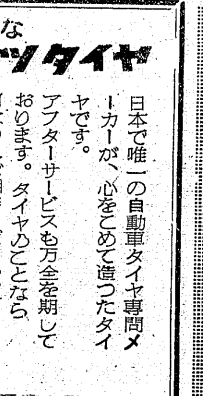 な
ツタイヤ
日本で唯一の自動車タイヤ専問メ
ーカーが、心をこめて造つたタイ
ヤです。
アフターサービスも万全を期して
おります。タイヤのことなら、